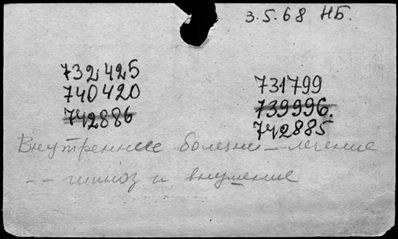 3.5.68 НБ.
732425
740420
742886
731799
739996.
742885
Внутренние болезни – лечение
– – гипноз и внушение